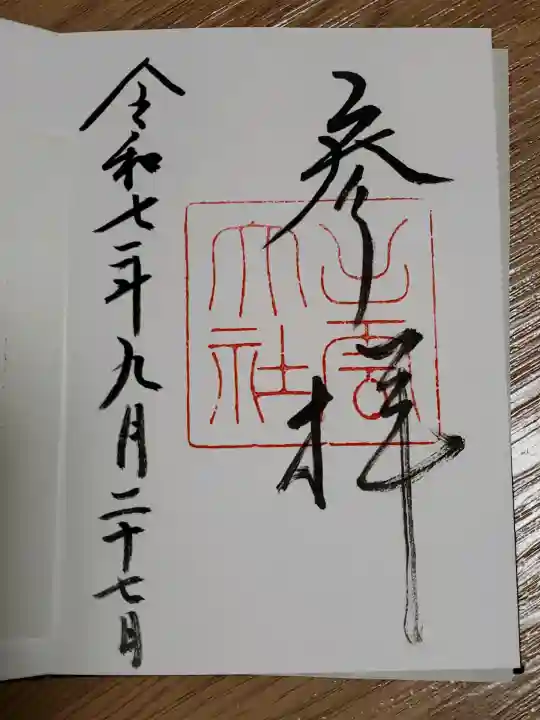 参拝
出雲大社
令和七年九月二十七日